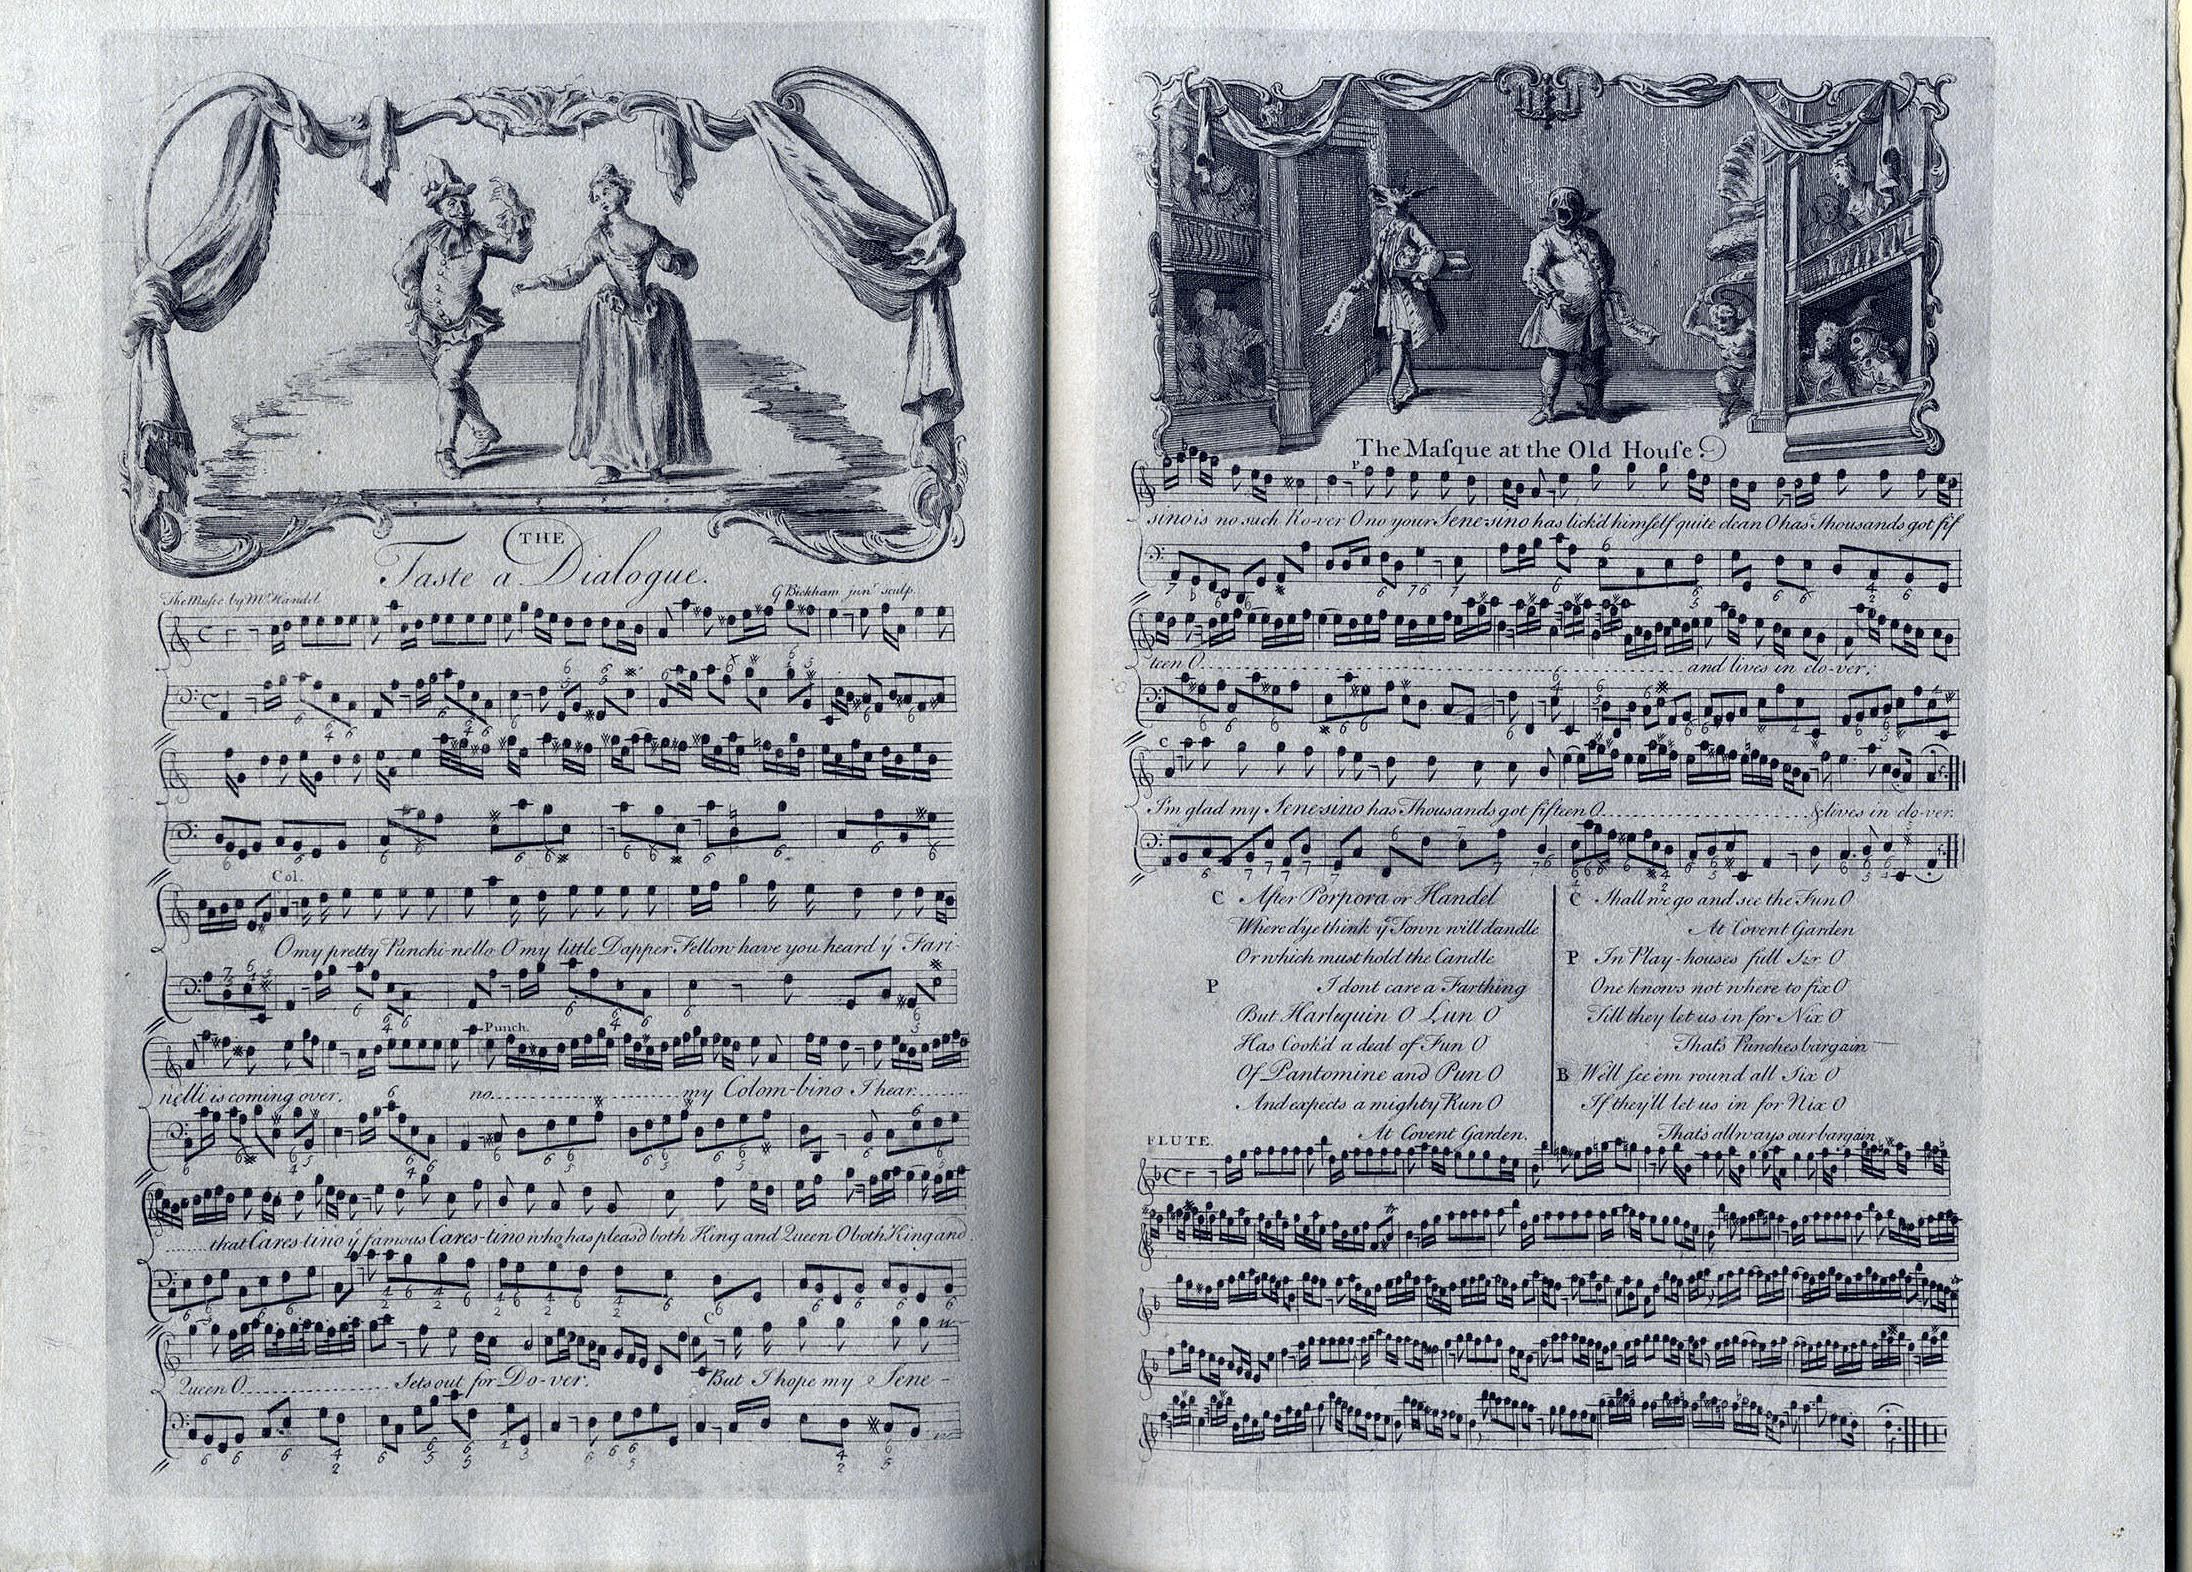 THE
Taste a Dialogue.
The Music by Mr. Handel
G Bickham junr. sculp.
Col.
O my pretty Punchi-nello O my little Dapper Fellow have you heard ye Fari-
Punch.
nelli is coming over. no........................my Colom-bino I hear........
.......that Cares-tino ye famous Cares-tino who has pleasd both King and Queen O both King and
C
Queen O........................ Sets out for Do-ver. But I hope my Sene-
The Masque at the Old House.
P
sino is no such Ro-ver O no your Sene-sino has lick'd himself quite clean O has Thousands got fif
teen O............................................................and lives in clo-ver;
C
I'm glad my Sene-sino has Thousands got fifteen O..............................& lives in clo-ver.
C After Porpora or Handel
Where d'ye think ye Town will dandle
Or which must hold the Candle
P I dont care a Farthing
But Harlequin O Lun O
Has Cook'd a deal of Fun O
Of Pantomine and Pun O
And expects a mighty Run O
At Covent Garden.
C Shall we go and see the Fun O
At Covent Garden
P In Play-houses full Six O
One knows not where to fix O
Till they let us in for Nix O
That's Punches bargain
B We'll see 'em round all Six O
If they'll let us in for Nix O
That's allways our bargain
FLUTE.